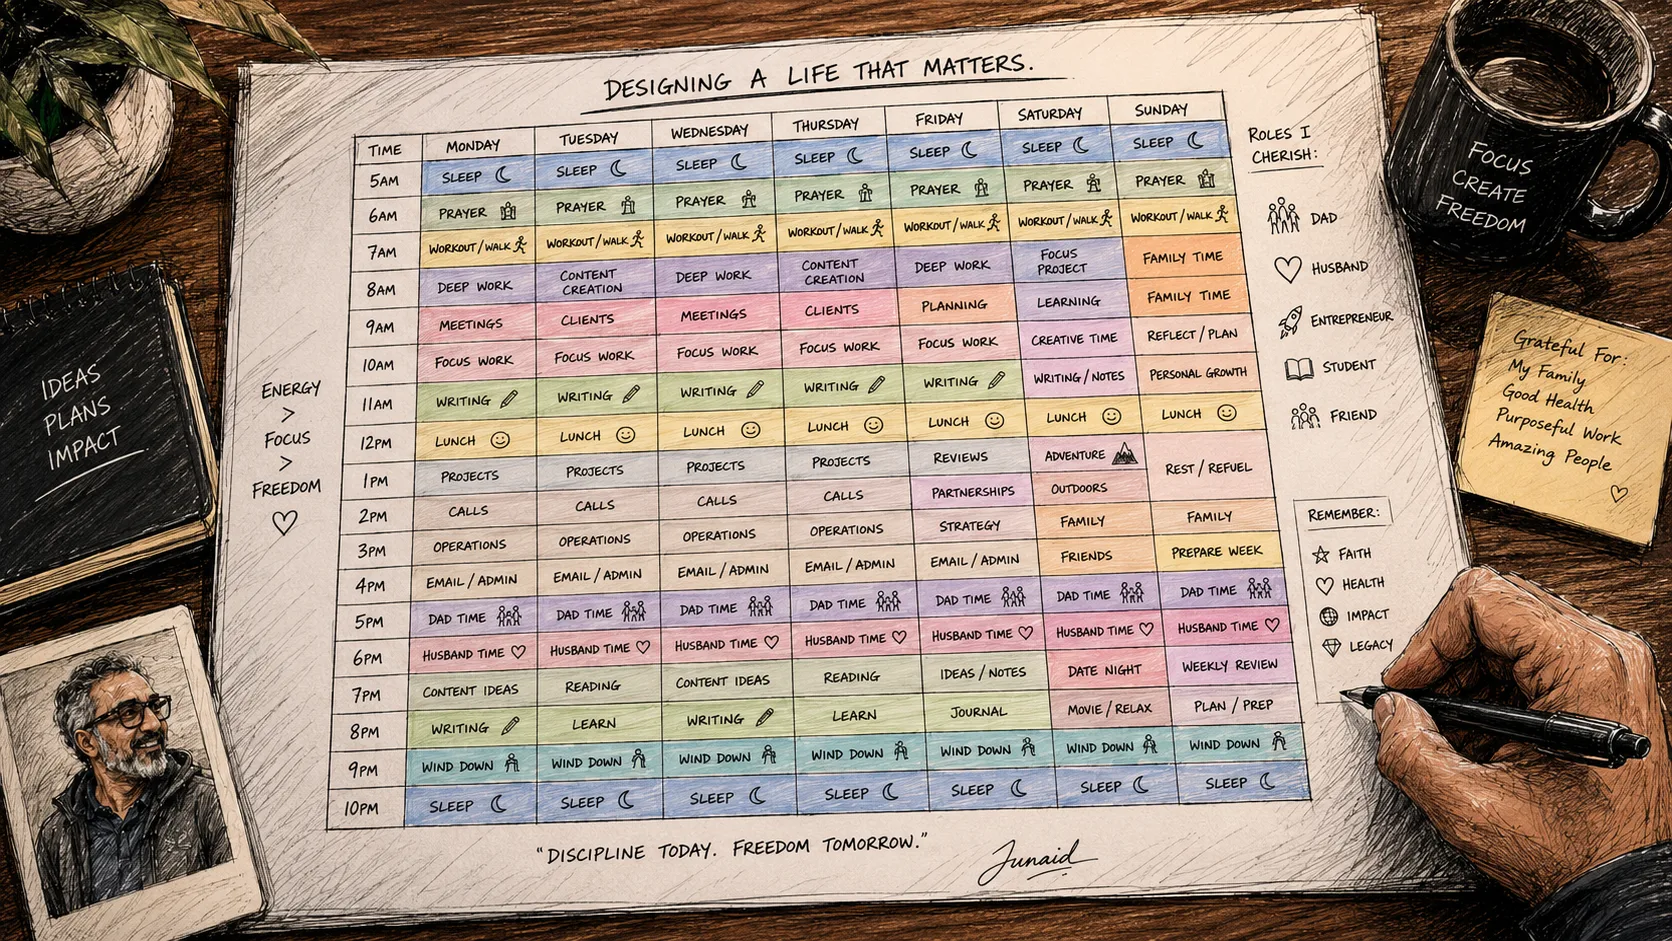 DESIGNING A LIFE THAT MATTERS.
TIME MONDAY TUESDAY WEDNESDAY THURSDAY FRIDAY SATURDAY SUNDAY
5AM SLEEP SLEEP SLEEP SLEEP SLEEP SLEEP SLEEP
6AM PRAYER PRAYER PRAYER PRAYER PRAYER PRAYER PRAYER
7AM WORKOUT/WALK WORKOUT/WALK WORKOUT/WALK WORKOUT/WALK WORKOUT/WALK WORKOUT/WALK WORKOUT/WALK
8AM DEEP WORK CONTENT CREATION DEEP WORK CONTENT CREATION DEEP WORK FOCUS PROJECT FAMILY TIME
9AM MEETINGS CLIENTS MEETINGS CLIENTS PLANNING LEARNING FAMILY TIME
10AM FOCUS WORK FOCUS WORK FOCUS WORK FOCUS WORK FOCUS WORK CREATIVE TIME REFLECT / PLAN
11AM WRITING WRITING WRITING WRITING WRITING WRITING / NOTES PERSONAL GROWTH
12PM LUNCH LUNCH LUNCH LUNCH LUNCH LUNCH LUNCH
1PM PROJECTS PROJECTS PROJECTS PROJECTS REVIEWS ADVENTURE REST / REFUEL
2PM CALLS CALLS CALLS CALLS PARTNERSHIPS OUTDOORS
3PM OPERATIONS OPERATIONS OPERATIONS OPERATIONS STRATEGY FAMILY FAMILY
4PM EMAIL / ADMIN EMAIL / ADMIN EMAIL / ADMIN EMAIL / ADMIN EMAIL / ADMIN FRIENDS PREPARE WEEK
5PM DAD TIME DAD TIME DAD TIME DAD TIME DAD TIME DAD TIME DAD TIME
6PM HUSBAND TIME HUSBAND TIME HUSBAND TIME HUSBAND TIME HUSBAND TIME HUSBAND TIME HUSBAND TIME
7PM CONTENT IDEAS READING CONTENT IDEAS READING IDEAS / NOTES DATE NIGHT WEEKLY REVIEW
8PM WRITING LEARN WRITING LEARN JOURNAL MOVIE / RELAX PLAN / PREP
9PM WIND DOWN WIND DOWN WIND DOWN WIND DOWN WIND DOWN WIND DOWN WIND DOWN
10PM SLEEP SLEEP SLEEP SLEEP SLEEP SLEEP SLEEP
"DISCIPLINE TODAY. FREEDOM TOMORROW."
Junaid
ENERGY
>
FOCUS
>
FREEDOM
IDEAS
PLANS
IMPACT
ROLES I
CHERISH:
DAD
HUSBAND
ENTREPRENEUR
STUDENT
FRIEND
REMEMBER:
FAITH
HEALTH
IMPACT
LEGACY
FOCUS
CREATE
FREEDOM
Grateful For:
My Family
Good Health
Purposeful Work
Amazing People